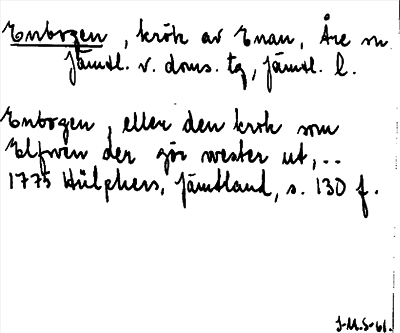 Enbogen, krök av Enan, Åre sn
Jämtl. v. doms. tg, Jämtl. l.
Enbogen, eller den krok som
Elfwen der gör wester ut,..
1775 Hülphers, Jämtland, s. 130 f.
J.M.S-61.